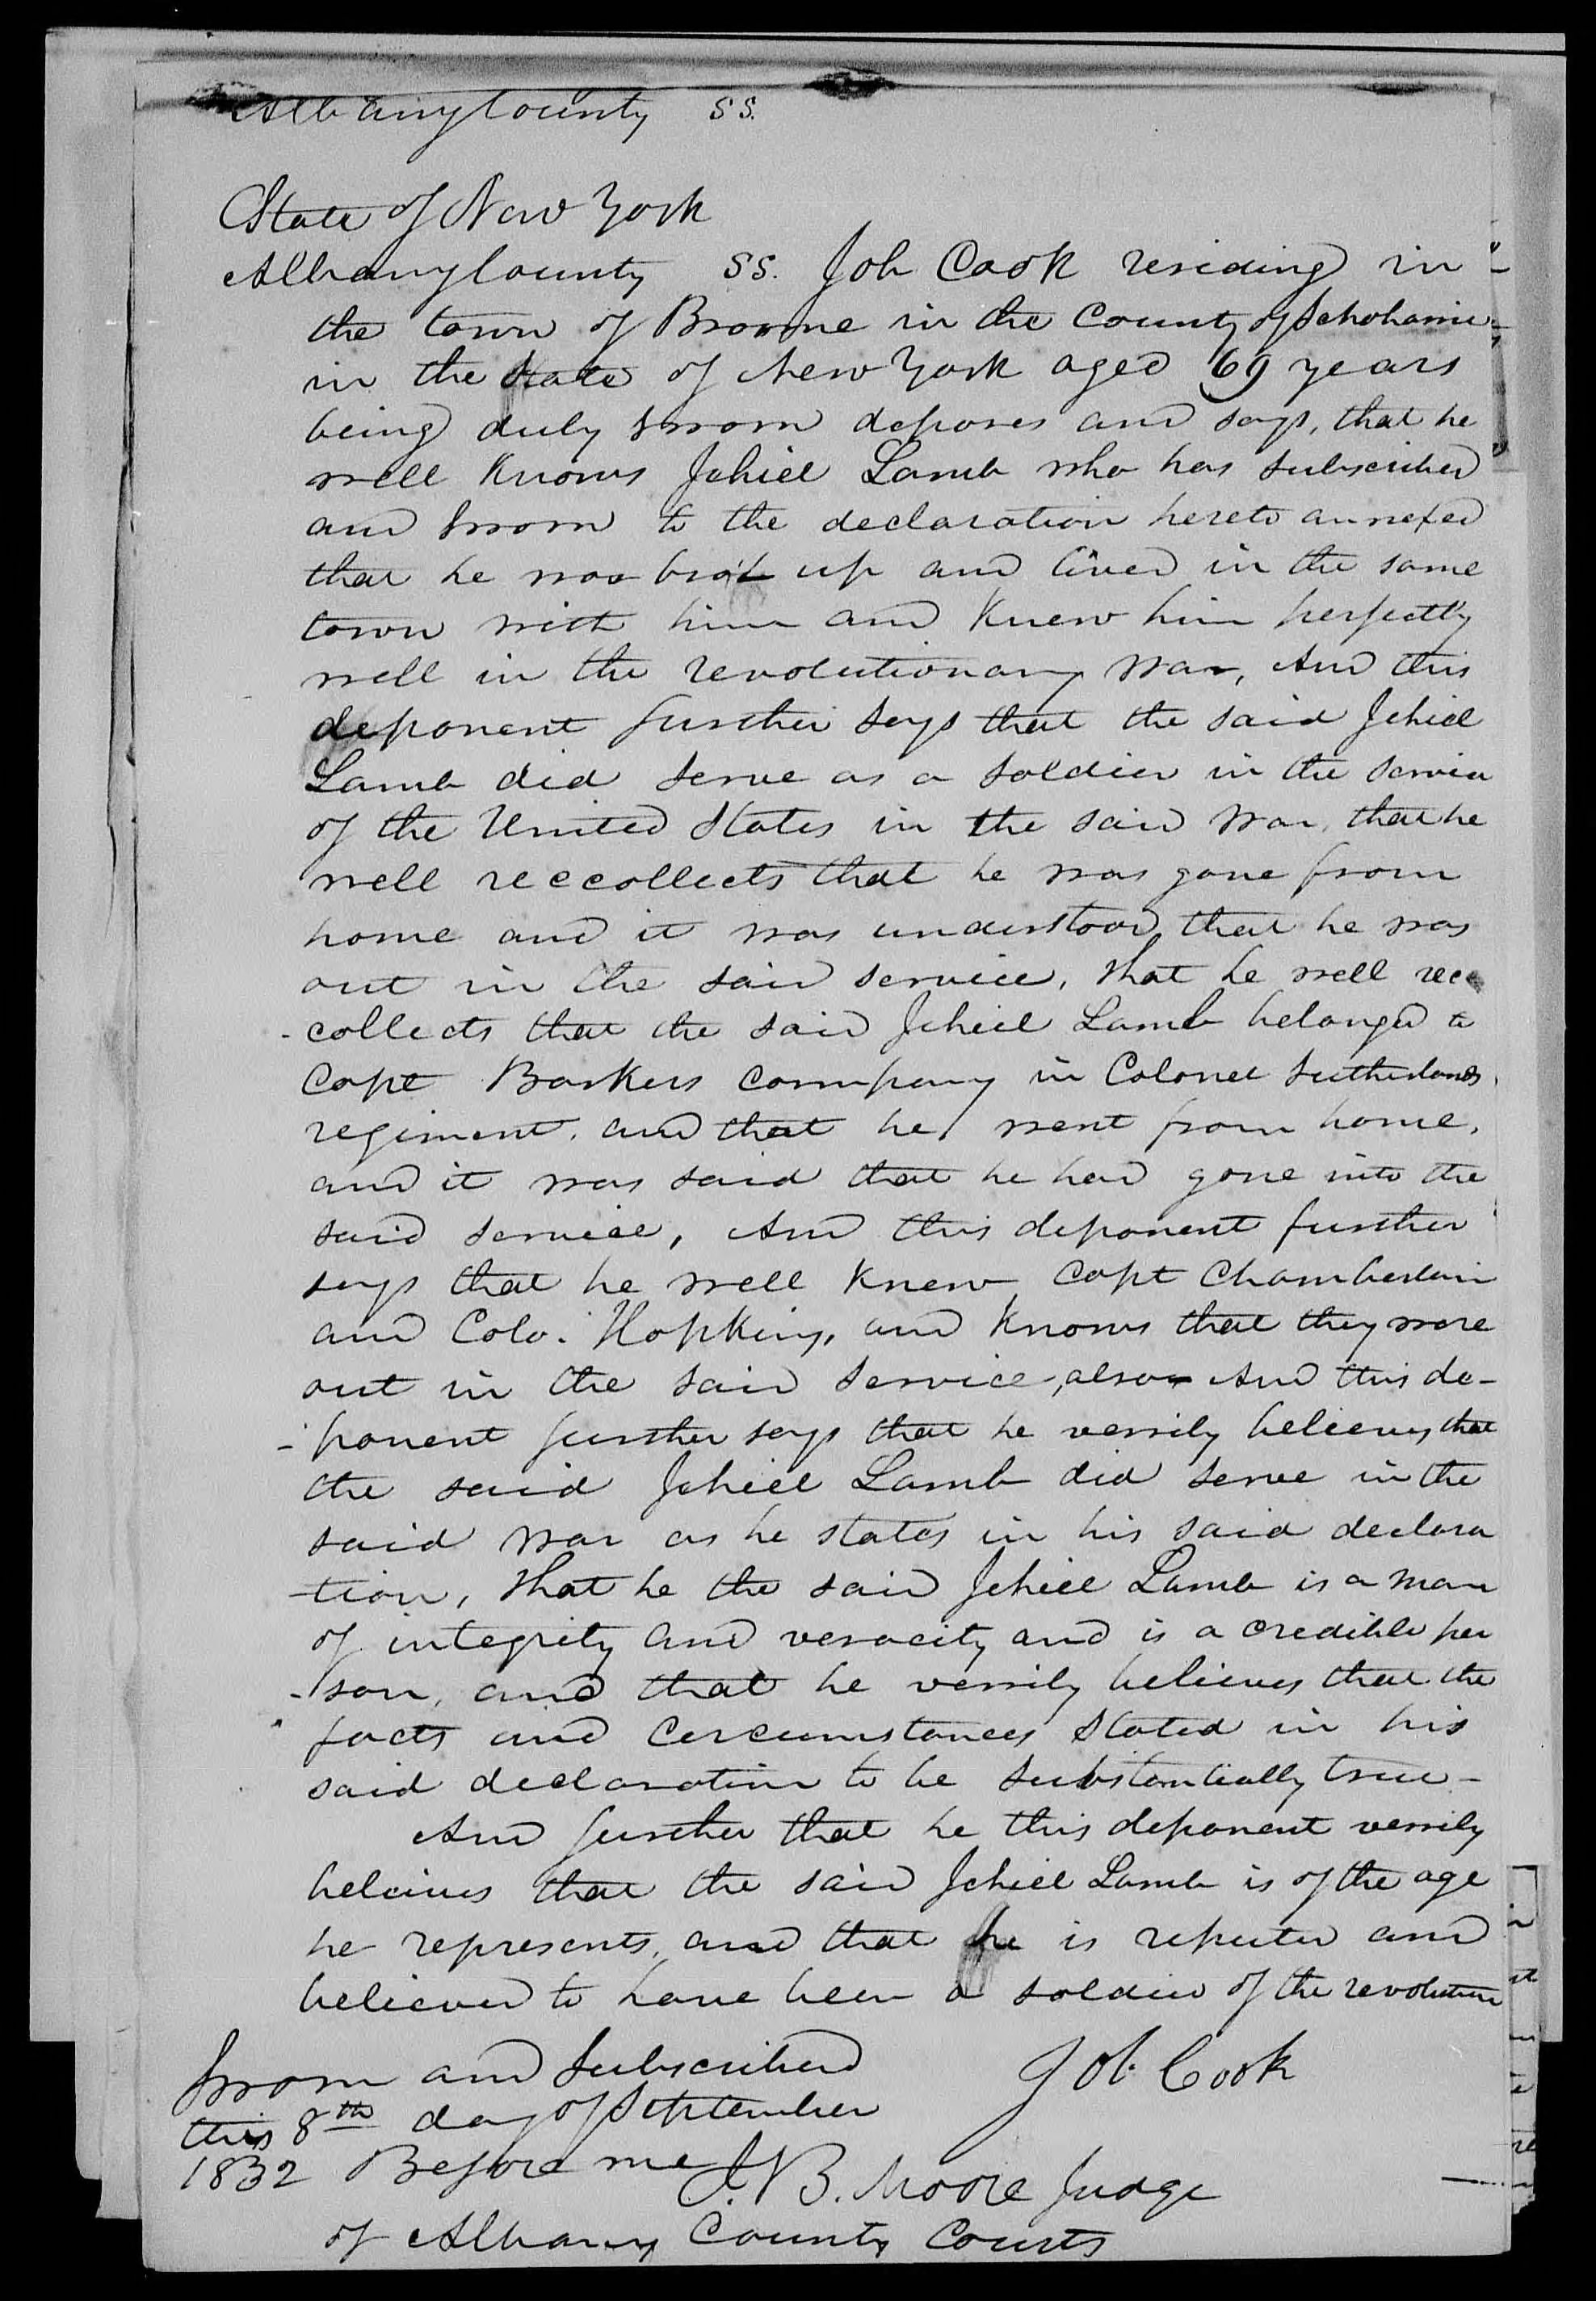 Albany County SS.
State of New York
Albany County SS. Job Cook residing in
the town of Broome in the County of Schoharie
in the State of New York aged 69 years
being duly sworn deposes and says, that he
well knows Jehiel Lamb who has subscribed
and sworn to the declaration hereto annexed
that he was brot up and lived in the same
town with him and knew him perfectly
well in the revolutionary war, And this
deponent further says that the said Jehiel
Lamb did serve as a soldier in the service
of the United States in the said war, that he
well reccollects that he was gone from
home and it was understood that he was
out in the said service, that he well rec
-collects that the said Jehiel Lamb belonged to
Capt Barkers company in Colonel Sutherlands
regiment, and that he went from home,
and it was said that he had gone into the
said service, And this deponent further
says that he well knew Capt Chamberlain
and Colo. Hopkins, and knows that they were
out in the said service, also And this de-
-ponent further says that he verrily believes that
the said Jehiel Lamb did serve in the
said war as he states in his said declara
-tion, that he the said Jehiel Lamb is a man
of integrity and veracity and is a credible per
-son, and that he verrily believes that the
facts and cercumstances stated in his
said declaration to be substantially true-
And further that he this deponent verrily
beleives that the said Jehiel Lamb is of the age
he represents, and that he is reputed and
believed to have been a soldier of the revolution
Sworn and Subscribed Job Cook
this 8th day of September
1832 Before me J. B. Moore Judge
of Albany County Courts